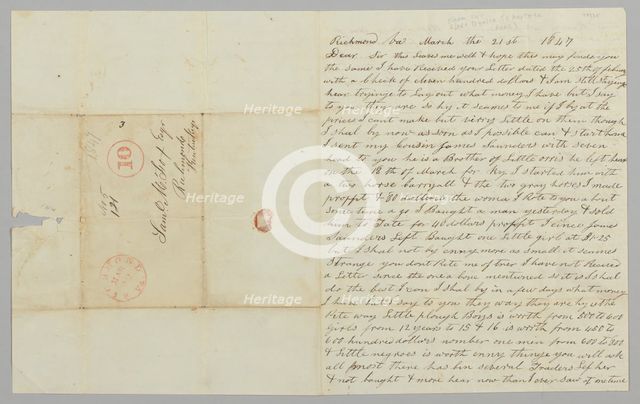 Richmond Va March the 21st 1847
Dear Sir this leaves me well & hope this may finde you
the same I have Received your Letter dated the 25th of
with a Check of eleven hundred dollars & I am Still Staying
hear trying to Lay out what money I have but I Say
to you they are so hy it seames to me if I by at the
prices I cant make but verry Little on them though
I shal by now as soon as I possible can & start home
I sent my cousin James Saunders with seven
head to you he is a Brother of Little he left hear
on the 18th of March for Ky I started him with
a horse carryall & the two gray horses I made
proffit & 80 selling the woman I Rote to you about
some time a go I Baught a man yesterday & sold
him to Date for 40 dollars proffit I cince James
Saunders Left Baught one Little girl at 325
but I shal not by enny more as small it seames
Strange you dont Rite me oftner I have not Received
a Letter since the one a bove mentioned so it is I shal
do the best I can I shal by in a few days what money
I have they Say to you they way they are hy is the
Rite way Little plough Boys is worth from 500 to 600
girls from 12 years to 15 & 16 is worth from 450 to
600 hundred dollars number one men from 600 to 700
& Little negroes is worth enny thinge you will ask
all most there has bin several Traders Left her
& not baught & more hear now than I ever saw at one time
3
10
1847
Saml R. Fox Esqr
Richmond
Kentucky
121
RICHMOND
MAR
Va.
Heritage
Heritage
Heritage
Heritage
Heritage
Heritage
Heritage